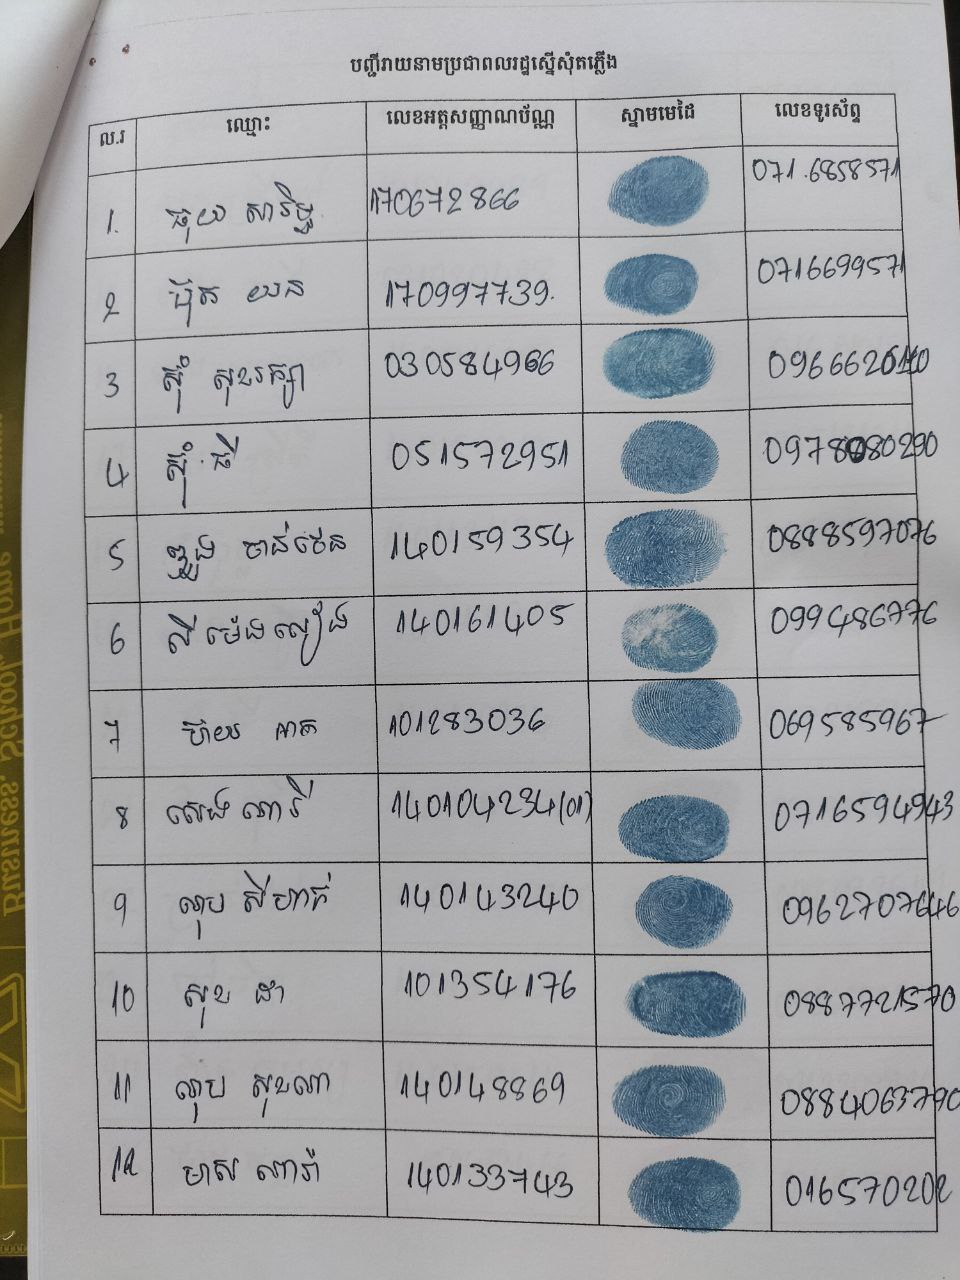 បញ្ជីរាយនាមប្រជាពលរដ្ឋស្នើសុំតភ្លើង
ល.រ ឈ្មោះ លេខអត្តសញ្ញាណប័ណ្ណ ស្នាមមេដៃ លេខទូរស័ព្ទ
1. 170672866 071.6858571
2 យន 170997739. 0716699571
3 ស៊ុំ សុខរក្សា 030584966
4 ស៊ុំ ធី 051572951
5 140159354 0888597076
6 លី ម៉េងហៀង 140161405 099486776
7 101283036 069585967
8 សេង ណារី 140104234(01) 0716594943
9 លុប ស៊ីហាក់ 140143240 0962707646
10 សុខ ដា 101354176 0887721570
11 លុប សុខណា 140148869 0884063790
12 មាស ណារ៉ា 140133743 016570202
Business, School, Home